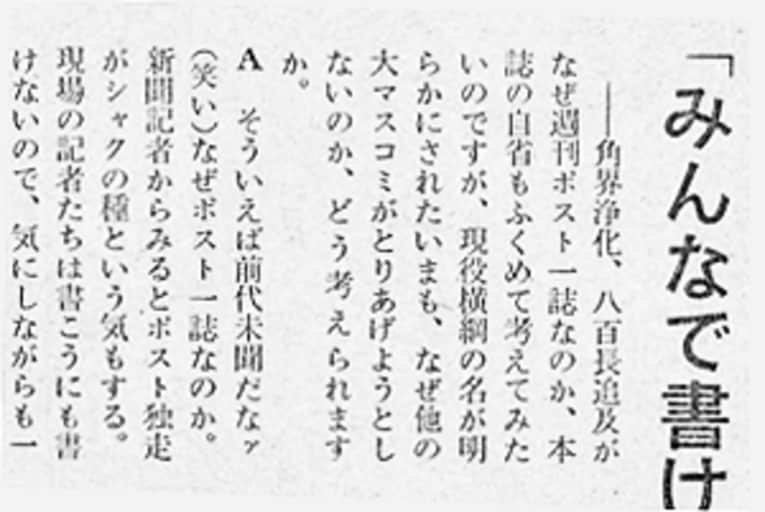 「みんなで書け
――角界浄化、八百長追及が
なぜ週刊ポスト一誌なのか、本
誌の自省もふくめて考えてみた
いのですが、現役横綱の名が明
らかにされたいまも、なぜ他の
大マスコミがとりあげようとし
ないのか、どう考えられます
か。
A そういえば前代未聞だなァ
(笑い)なぜポスト一誌なのか。
新聞記者からみるとポスト独走
がシャクの種という気もする。
現場の記者たちは書こうにも書
けないので、気にしながらも一